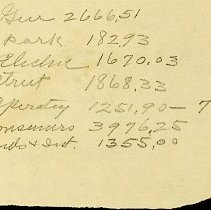 Gen 2666.51
park 182.93
Electric 1670.03
street 1868.33
Operating 1251.90 — 7
onsumers 3976.25
nds & Int. 1355.00